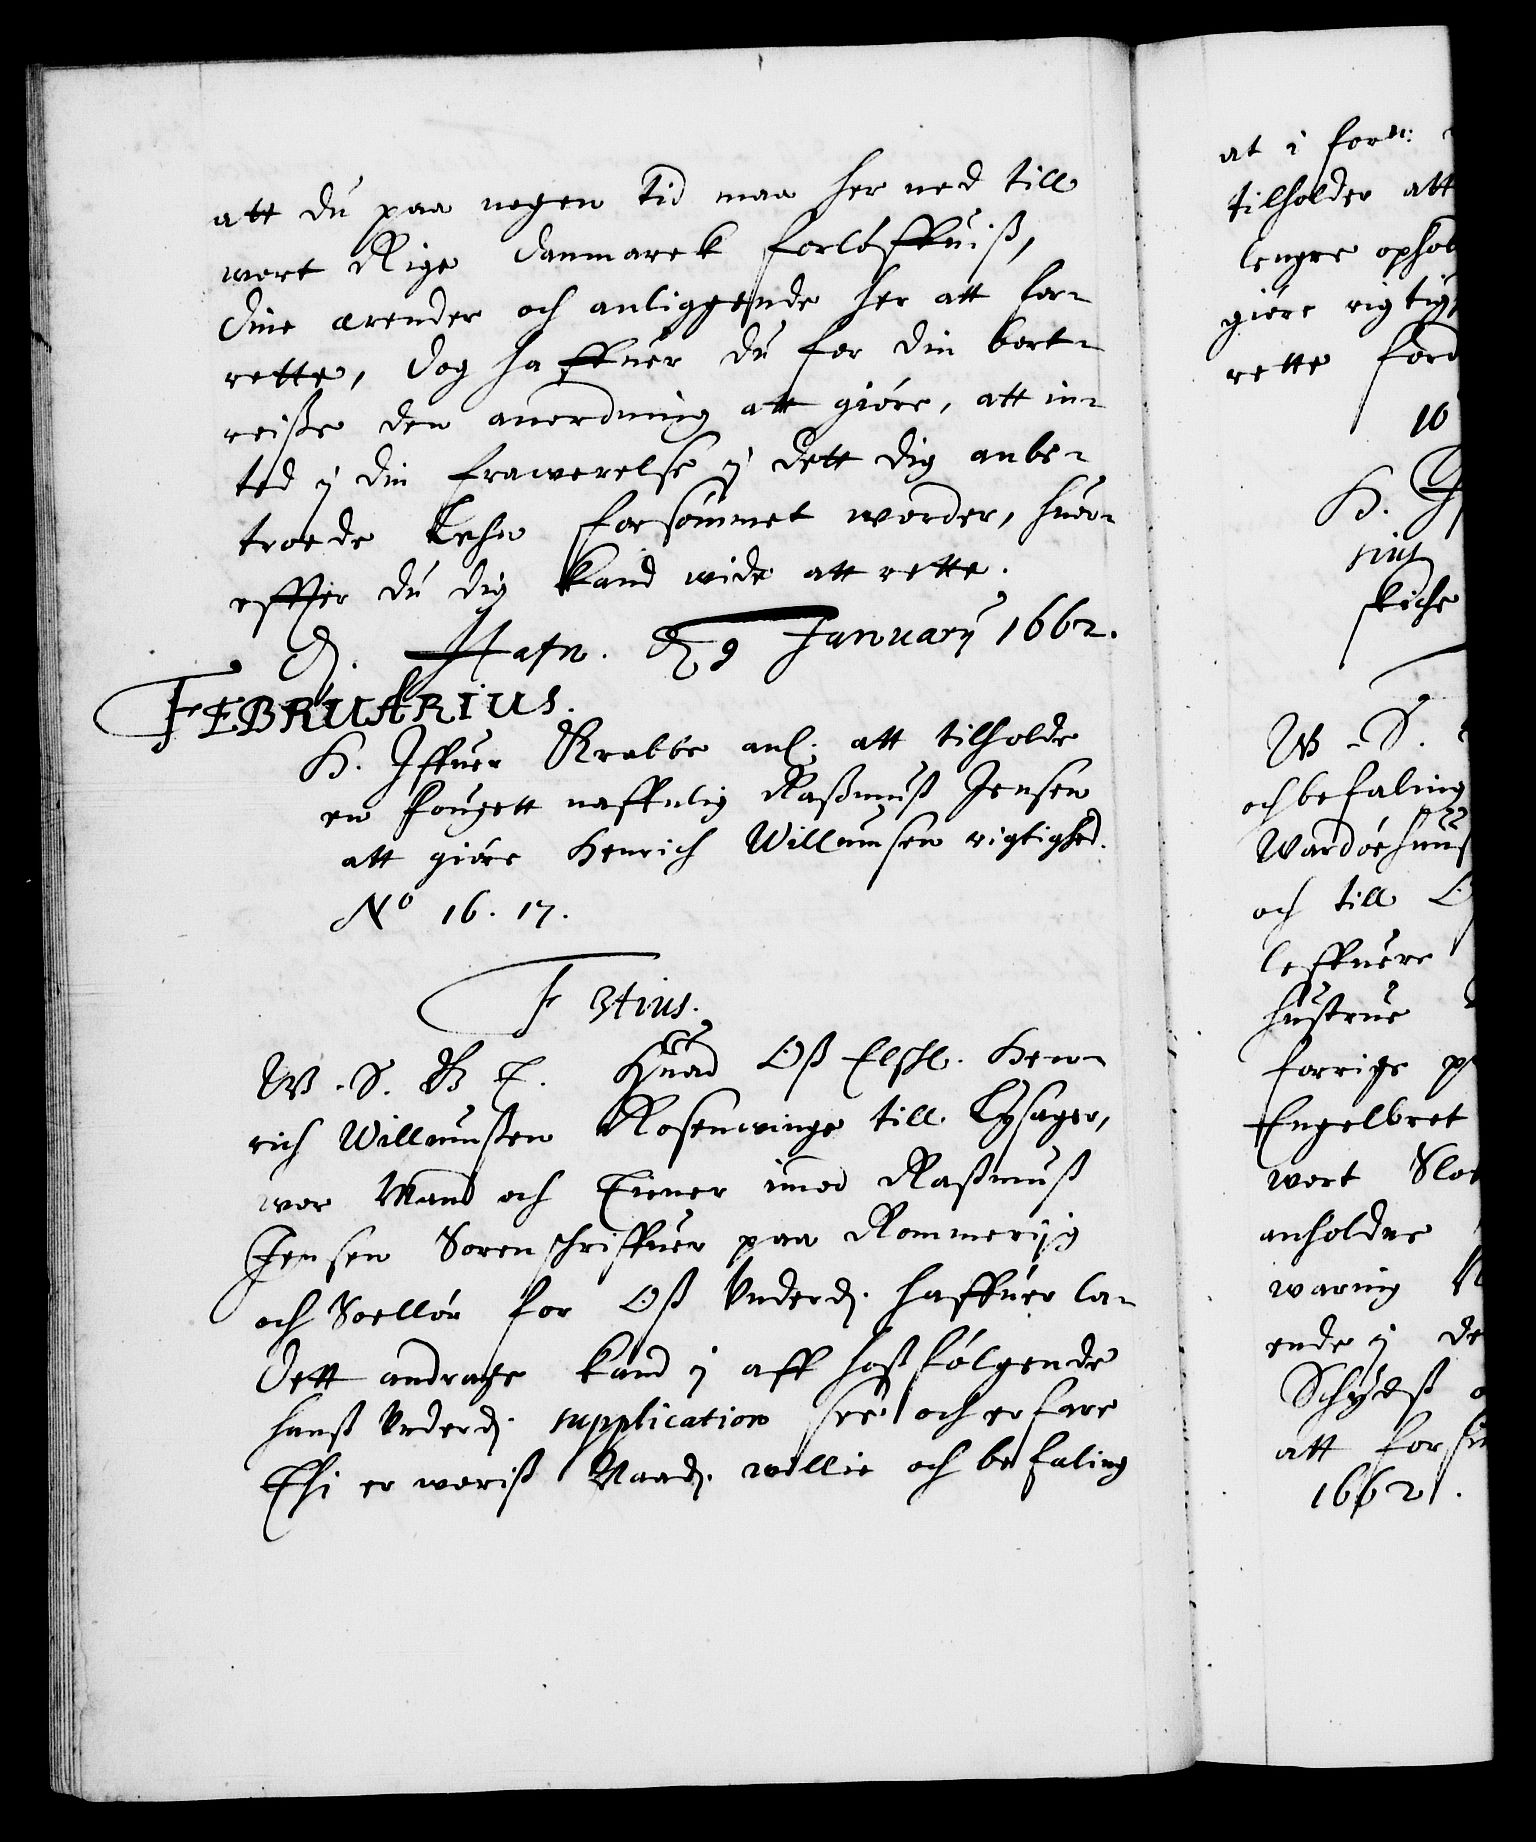 att du paa nogen tid maa her ned till
wort Rige Danmarck forlöffuiß,
dine ærender och anliggende her att for-
rette, dog haffuer du for din bort-
reiße den anordning att giöre, att in-
ted ij din frawerelse ij dett dig anbe-
troede Lehn forsömmet worder, huor-
effter du dig kand wide att rette.
Hafn. 9 January 1662.
FEBRUARIUS.
H. Iffuer Krabbe anl: att tilholde
en fougett naffnlig Raßmuß Jensen
att giöre Henrich Willumsen rigtighed.
No 16. 17.
F 3tius.
W. S. G T. Huad Oß Elschl. Hen-
rich Willumßen Rosenwinge till Lysager,
wor Mand och Tiener imod Raßmuß
Jensen Sorenschriffuer paa Rommerijg
och Soellör for Oß Underd. haffuer la-
dett andrage kand ij aff hoßfölgende
hanß Underd. supplication see och erfare
Thi er woriß Naad. willie och befaling
at i for
tilholder att
lengre ophol
giöre rigtig
rette ford
10
H.
ring
skiche
W. S.
och befaling
Wardöehuus
och till
leffuere
hustrue
forrige
Engelbret
wort Slot
anholdne
waring
ende ij de
Schydß
att forsi
1662.